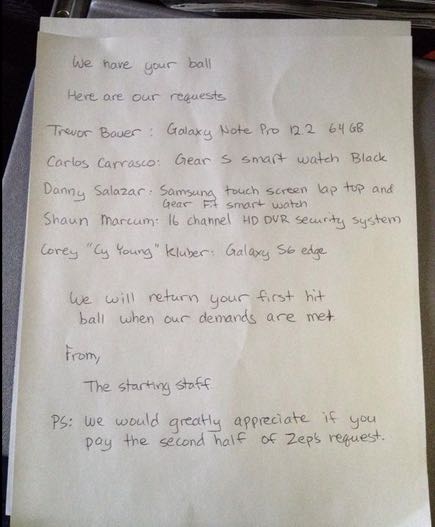 We have your ball
Here are our requests
Trevor Bauer : Galaxy Note Pro 12.2 64GB
Carlos Carrasco: Gear S smart watch Black
Danny Salazar: Samsung touch screen lap top and
Gear Fit smart watch
Shaun Marcum: 16 channel HD DVR security system
Corey "Cy Young" Kluber: Galaxy S6 edge
We will return your first hit
ball when our demands are met
From,
The starting staff
PS: we would greatly appreciate if you
pay the second half of Zep's request.